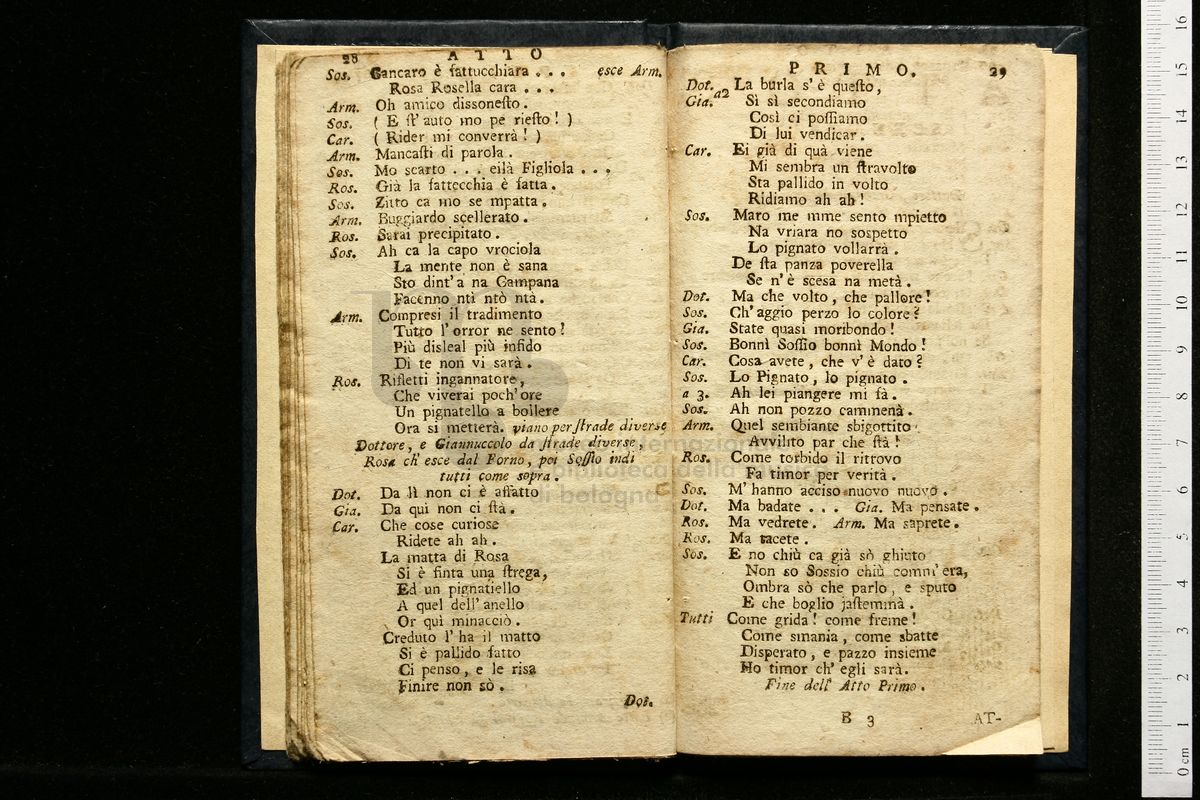 28 ATTO
Sos. Cancaro è fattucchiara . . . esce Arm.
Rosa Rosella cara . . .
Arm. Oh amico dissonesto.
Sos. ( E st' auto mo pe riesto! )
Car. ( Rider mi converrà! )
Arm. Mancasti di parola.
Sos. Mo scarto . . . eilà Figliola . . .
Ros. Già la fattecchia è fatta.
Sos. Zitto ca mo se mpatta.
Arm. Buggiardo scellerato.
Ros. Sarai precipitato.
Sos. Ah ca la capo vrociola
La mente non è sana
Sto dint' a na Campana
Facenno ntì ntò ntà.
Arm. Compresi il tradimento
Tutto l' orror ne sento!
Più disleal più infido
Di te non vi sarà.
Ros. Rifletti ingannatore,
Che viverai poch' ore
Un pignatello a bollere
Ora si metterà. viano per strade diverse
Dottore, e Giannuccolo da strade diverse,
Rosa ch' esce dal Forno, poi Sossio indi
tutti come sopra.
Dot. Da lì non ci è affatto
Gia. Da qui non ci stà.
Car. Che cose curiose
Ridete ah ah.
La matta di Rosa
Si è finta una strega,
Ed un pignatiello
A quel dell' anello
Or quì minacciò.
Creduto l' ha il matto
Si è pallido fatto
Ci penso, e le risa
Finire non sò.
Dot.
PRIMO. 29
Dot. a2 La burla s' è questo,
Gia. Sì sì secondiamo
Così ci possiamo
Di lui vendicar.
Car. Ei già di quà viene
Mi sembra un stravolto
Sta pallido in volto
Ridiamo ah ah!
Sos. Maro me mme sento mpietto
Na vriara no sospetto
Lo pignato vollarrà.
De sta panza poverella
Se n' è scesa na metà.
Dot. Ma che volto, che pallore!
Sos. Ch' aggio perzo lo colore?
Gia. State quasi moribondo!
Sos. Bonnì Sossio bonnì Mondo!
Car. Cosa avete, che v' è dato?
Sos. Lo Pignato, lo pignato.
a 3. Ah lei piangere mi fà.
Sos. Ah non pozzo cammenà.
Arm. Quel sembiante sbigottito
Avvilito par che stà!
Ros. Come torbido il ritrovo
Fa timor per verità.
Sos. M' hanno acciso nuovo nuovo.
Dot. Ma badate . . . Gia. Ma pensate.
Ros. Ma vedrete. Arm. Ma saprete.
Ros. Ma tacete.
Sos. E no chiù ca già sò ghiuto
Non so Sossio chiù comm' era,
Ombra sò che parlo, e sputo
E che boglio jastemmà.
Tutti Come grida! come freme!
Come smania, come sbatte
Disperato, e pazzo insieme
Ho timor ch' egli sarà.
Fine dell' Atto Primo.
B 3 AT-